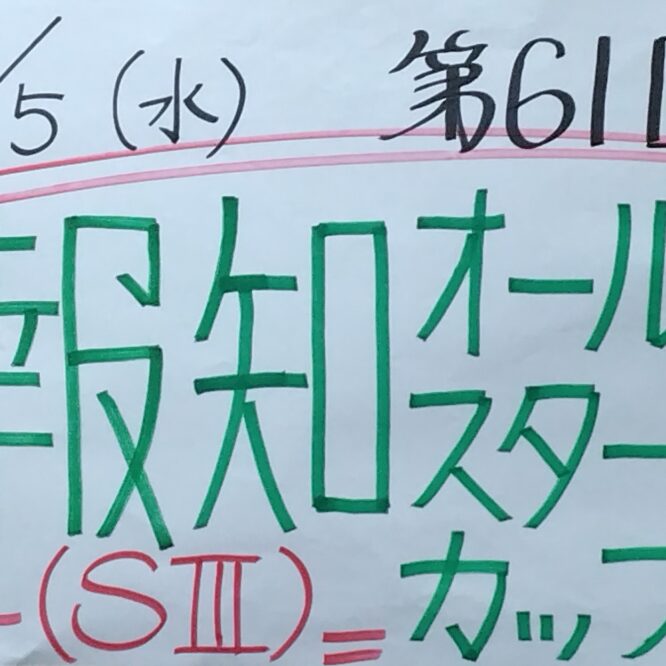 /5(水) 第61
報知オール
スター
(SIII)=カップ